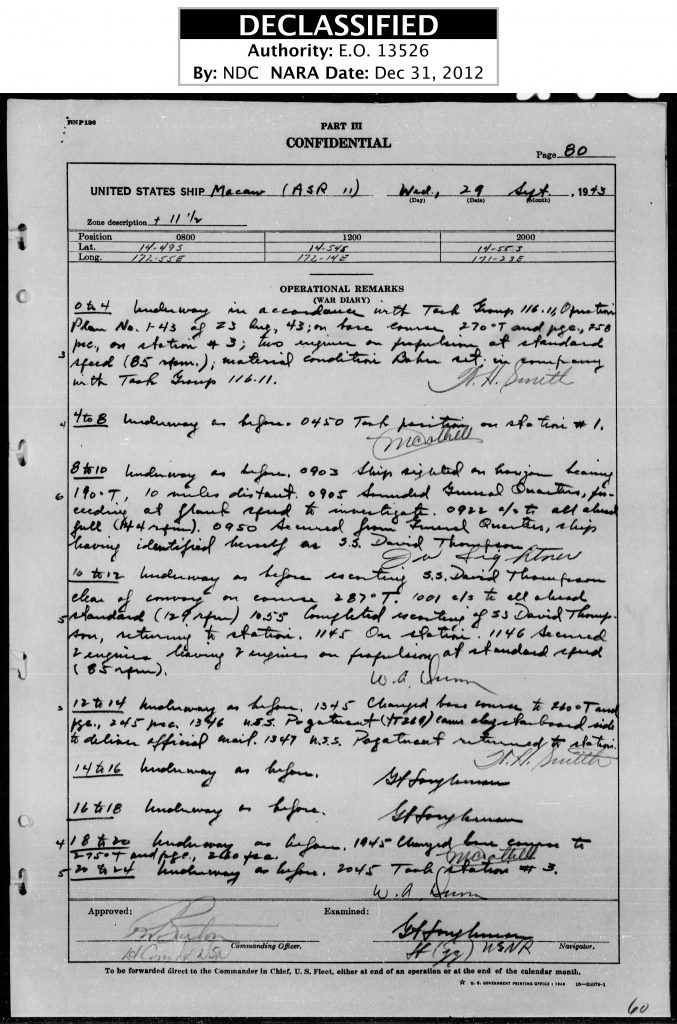 DECLASSIFIED
Authority: E.O. 13526
By: NDC NARA Date: Dec 31, 2012
RNP136
PART III
CONFIDENTIAL
Page 80
UNITED STATES SHIP Macaw (ASR 11) Wed., 29 Sept., 1943
(Day) (Date) (Month)
Zone description + 11 1/2
Position 0800 1200 2000
Lat. 14-49S 14-54S 14-55S
Long. 172-55E 172-14E 171-23E
OPERATIONAL REMARKS
(WAR DIARY)
0 to 4 Underway in accordance with Task Group 116.11, Operation
Plan No. 1-43 of 23 Aug, 43; on base course 270°T and pgc., 258
psc., on station # 3; two engines on propulsion at standard
3 speed (85 rpm.); material condition Baker set; in company
with Task Group 116.11.
W. H. Smith
4 4 to 8 Underway as before. 0450 Took position on station # 1.
8 to 10 Underway as before. 0903 Ship sighted on horizon bearing
6 190°T, 10 miles distant. 0905 Sounded General Quarters, pro-
ceeding at flank speed to investigate. 0922 c/s to all ahead
full (144 rpm). 0950 Secured from General Quarters, ship
having identified herself as S.S. David Thompson.
10 to 12 Underway as before escorting S.S. David Thompson
clear of convoy on course 287°T. 1001 c/s to all ahead
5 standard (129 rpm) 1055 Completed escorting of SS David Thomp-
son, returning to station. 1145 On station. 1146 Secured
2 engines leaving 2 engines on propulsion at standard speed
(85 rpm).
W. A. Dunn
3 12 to 14 Underway as before. 1345 Changed base course to 260°T and
pgc., 245 psc. 1346 U.S.S. Pogatuent (AT269) came along starboard side
to deliver official mail. 1347 U.S.S. Pogatuent returned to station.
W. H. Smith
14 to 16 Underway as before.
16 to 18 Underway as before.
4 18 to 20 Underway as before. 1945 Changed base course to
275°T and pgc., 2660 psc.
5 20 to 24 Underway as before. 2045 Took station # 3.
W. A. Dunn
Approved: Examined:
Lt Comdr USN Commanding Officer. Lt (jg) USNR Navigator.
To be forwarded direct to the Commander in Chief, U. S. Fleet, either at end of an operation or at the end of the calendar month.
☆ U. S. GOVERNMENT PRINTING OFFICE : 1943
60